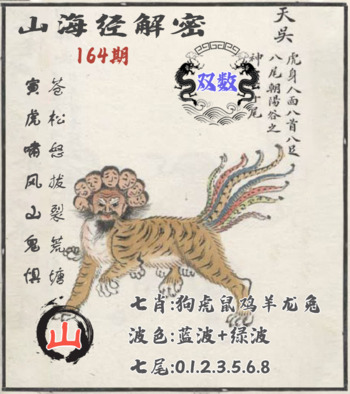 山海经解密
164期
双数
天吴
虎身人面八首八足
八尾朝阳谷之
神
尾
寅虎啸风山鬼惧
苍松怒拔裂莞塘
山
七肖:狗虎鼠鸡羊龙兔
波色:蓝波+绿波
七尾:0.1.2.3.5.6.8